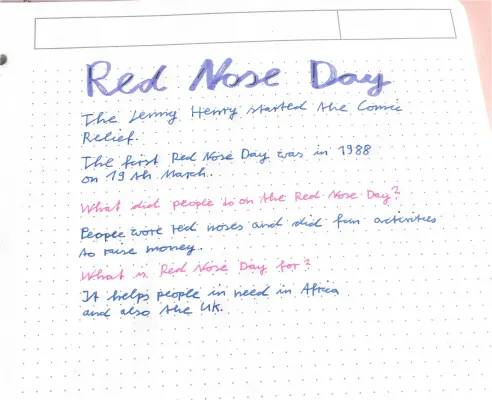 Red Nose Day
The Lenny Henry started the Comic
Relief.
The first Red Nose Day was in 1988
on 19 th March.
What did people to on the Red Nose Day?
People wore red noses and did fun activities
to raise money.
What is Red Nose Day for?
It helps people in need in Africa
and also the UK.